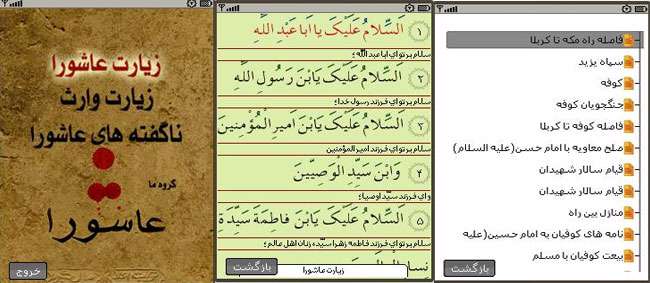 زیارت عاشورا
زیارت وارث
ناگفته های عاشورا
گروه ما
عاشورا
خروج
۱ اَلسَّلامُ عَلَیْکَ یا اَبا عَبْدِ اللَّهِ
سلام بر تو ای ابا عبد الله ؛
۲ اَلسَّلامُ عَلَیْکَ یَابْنَ رَسُولِ اللَّهِ
سلام بر تو ای فرزند رسول خدا ؛
۳ اَلسَّلامُ عَلَیْکَ یَابْنَ اَمیرِ الْمُؤْمِنینَ
سلام بر تو ای فرزند امیر المؤمنین
۴ وَابْنَ سَیِّدِ الْوَصِیّینَ
و ای فرزند سیّد اوصیا ؛
۵ اَلسَّلامُ عَلَیْکَ یَابْنَ فاطِمَةَ سَیِّدَةِ
سلام بر تو ای فرزند فاطمه زهرا سیّده زنان اهل عالم ؛
زیارت عاشورا
بازگشت
فاصله راه مکه تا کربلا
سپاه یزید
کوفه
جنگجویان کوفه
فاصله کوفه تا کربلا
صلح معاویه با امام حسن(علیه السلام)
قیام سالار شهیدان
قیام سالار شهیدان
منازل بین راه
نامه های کوفیان به امام حسین(علیه
بیعت کوفیان با مسلم
بازگشت